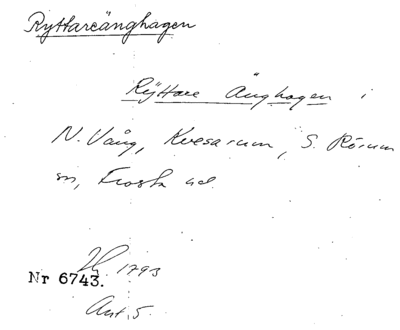 Ryttareänghagen
Ryttare Änghagen i
N. Vång, Kvesarum, S. Rörum
sn, Frosta hd.
1793
Nr 6743.
Ant. 5.